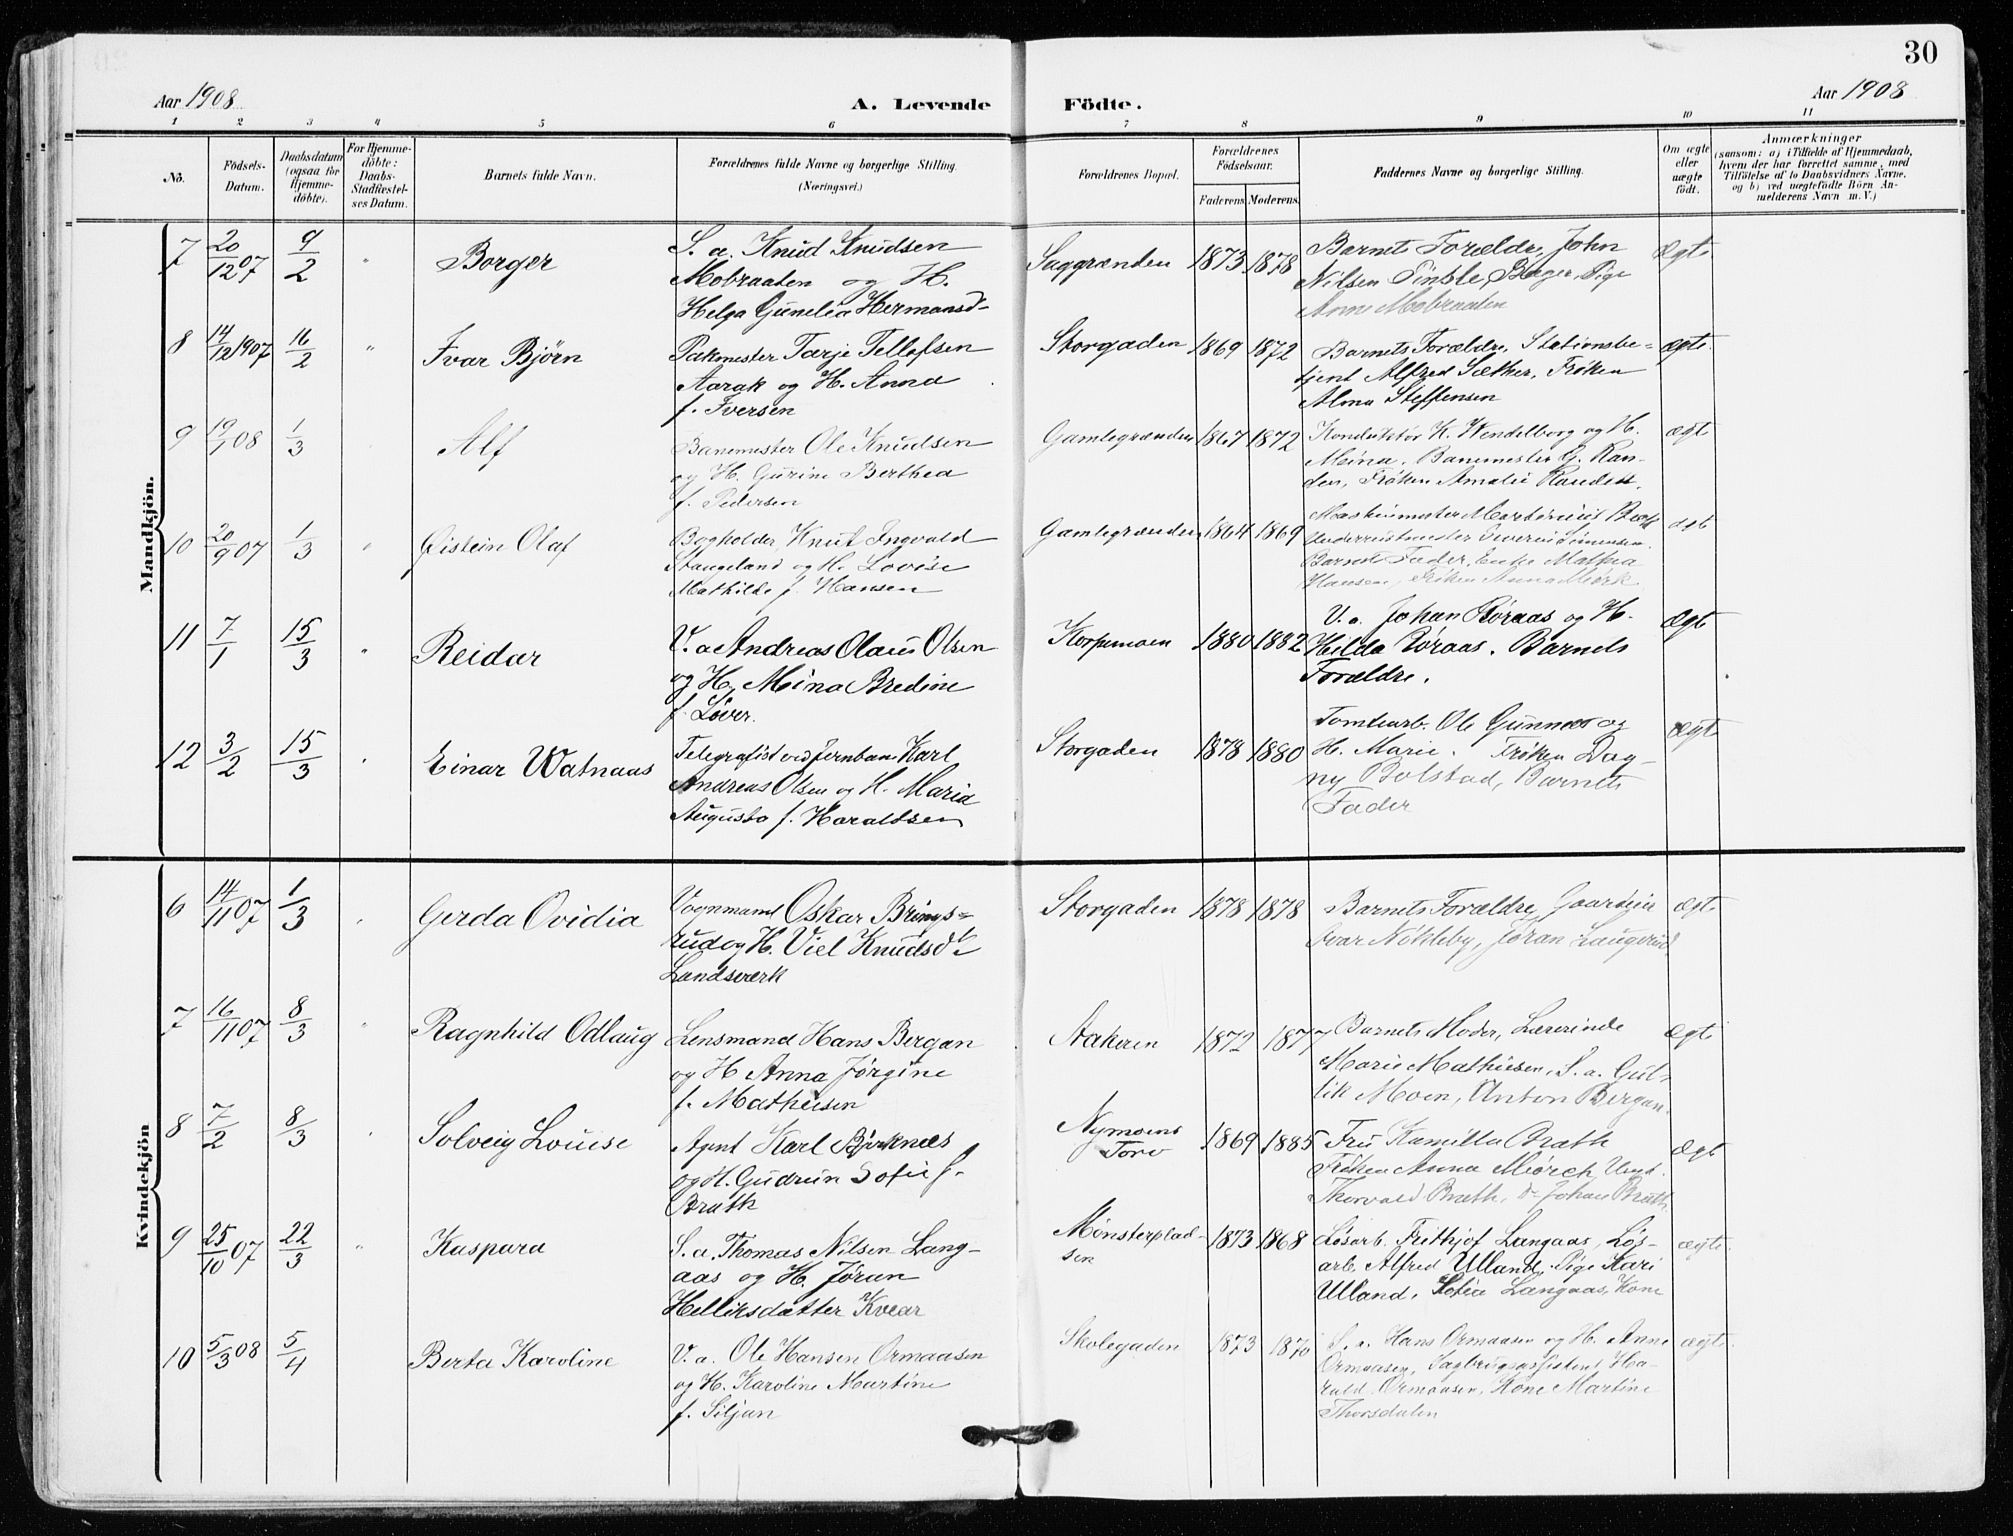 30
Aar 1908
A. Levende
Födte.
Aar 1908
1 2 3 4 5 6 7 8 9 10 11
No.
Födsels-
Datum.
Daabsdatum
(ogsaa for
Hjemme-
döbte).
For Hjemme-
döbte:
Daabs-
Stadfæstel-
ses Datum.
Barnets fulde Navn.
Forældrenes fulde Navne og borgerlige Stilling.
(Næringsvei.)
Forældrenes Bopæl.
Forældrenes
Födselsaar.
Faderens. Moderens.
Faddernes Navne og borgerlige Stilling.
Om ægte
eller
uægte
födt.
Anmærkninger
(saasom: a) i Tilfælde af Hjemmedaab,
hvem der har forrettet samme, med
Tilföielse af to Daabsvidners Navne,
og b) ved uægtefödte Börn An-
melderens Navn m. V.)
Mandkjön.
7 20/12 07 9/2 " Borger
S. a. Knud Knudsen
Mobraaten og H.
Helga Gunelia Hermansd-
Saggrænden 1873 1878
Barnets Forældre, John
Nilsen Tinble, Pige
Anne Mobraaten
Ægte
8 14/12 1907 16/2 " Ivar Bjørn
Pakmester Tarje Tellefsen
Aarak og H. Anna
f. Iversen
Storgaden 1869 1872
Barnets Forældre, Stationsbe-
tjent Alfred Sæther, Frøken
Alma Steffensen
ægte
9 19/1 08 1/3 " Alf
Banemester Ole Knudsen
og H. Gurine Berthea
f. Pedersen
Gamlegrænden 1867 1872
Konduktør K. Wendelborg og H.
Meina. Banemester G. Ran-
den, Frøken Amalie Randen.
ægt
10 20/9 07 1/3 " Øistein Olaf
Bogholder Knut Ingvald
Stangeland og H. Lovise
Mathilde f. Hansen
Gamlegrænden 1864 1869
Maskinmester
Barnets Fader, Enke Mathea
Hansen, Frøken Anna Mørk
ægt
11 7/1 15/3 " Reidar
V. a Andreas Olaus Olsen
og H. Meina Bredine
f. Løver.
Korpemoen 1880 1882
V. a. Johan Røraas og H.
Hilda Røraas. Barnets
Forældre.
Ægt
12 3/2 15/3 " Einar Watnaas
Telegrafist ved Jernban. Karl
Andreas Olsen og H. Maria
Augusta f. Haraldsen
Storgaden 1878 1880
Tomtearb. Ole Gunnes og
H. Marie. Frøken Dag-
ny Bolstad, Barnets
Fader
ægt
Kvindekjön
6 14/11 07 1/3 " Gerda Ovidia
Vognmand Oskar Brings-
rud og H. Viel Knudsdt
Landsværk
Storgaden 1878 1878
Barnets Forældre, Gaardejer
Ivar Nøkleby, Jøran Laugerud
ægte
7 16/11 07 8/3 " Ragnhild Odlaug
Lensmand Hans Bergan
og H Anna Jørgine
f. Mathiesen
Aakeren 1872 1877
Barnets Moder, Lærerinde
Marie Mathiesen, S. a. Gul-
lik Moen, Anton Bergan.
Ægt
8 7/2 8/3 " Solveig Louise
Agent Karl Bjerknes
og H. Gudrun Sofie f.
Brath
Nymoens
Torv 1869 1885
Fru Kamilla Brath
Frøken Anna Mörch, Ungk.
Thorvald Brath, do Johan Brath
Ægt
9 25/10 07 22/3 " Kaspara
S. a. Thomas Nilsen Lang-
aas og H. Jøran
Helliksdatter Kvear
Mønsterplad-
sen 1873 1868
Løsarb. Frithjof Langaas, Løs-
arb. Alfred Ulland, Pige Kari
Ulland, Sofie Langaas, Kone
ægte.
10 5/3 08 5/4 Berta Karoline
V. a. Ole Hansen Ormaasen
og H. Karoline Martine
f. Siljan
Skolegaden 1873 1870
S. a. Hans Ormaasen og H. Anne
Ormaasen, Sagbrugsassistent Ha-
rald Ormaasen, Kone Martine
Thorsdalen
ægte